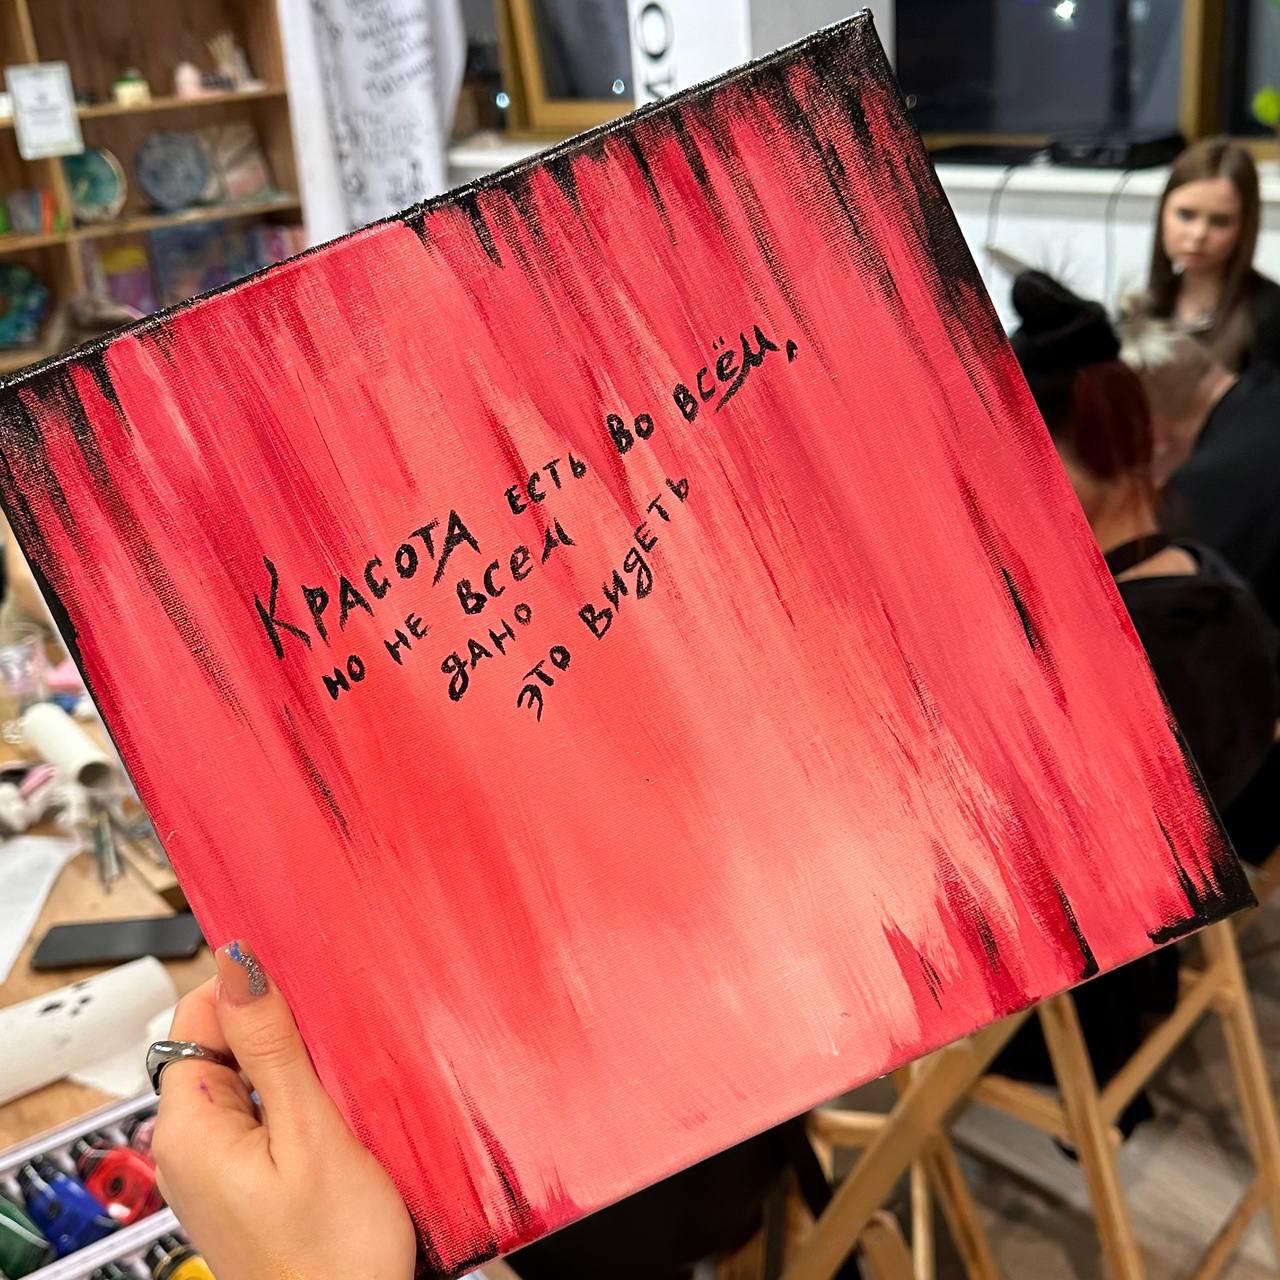 Красота есть во всём,
но не всем
дано
это видеть